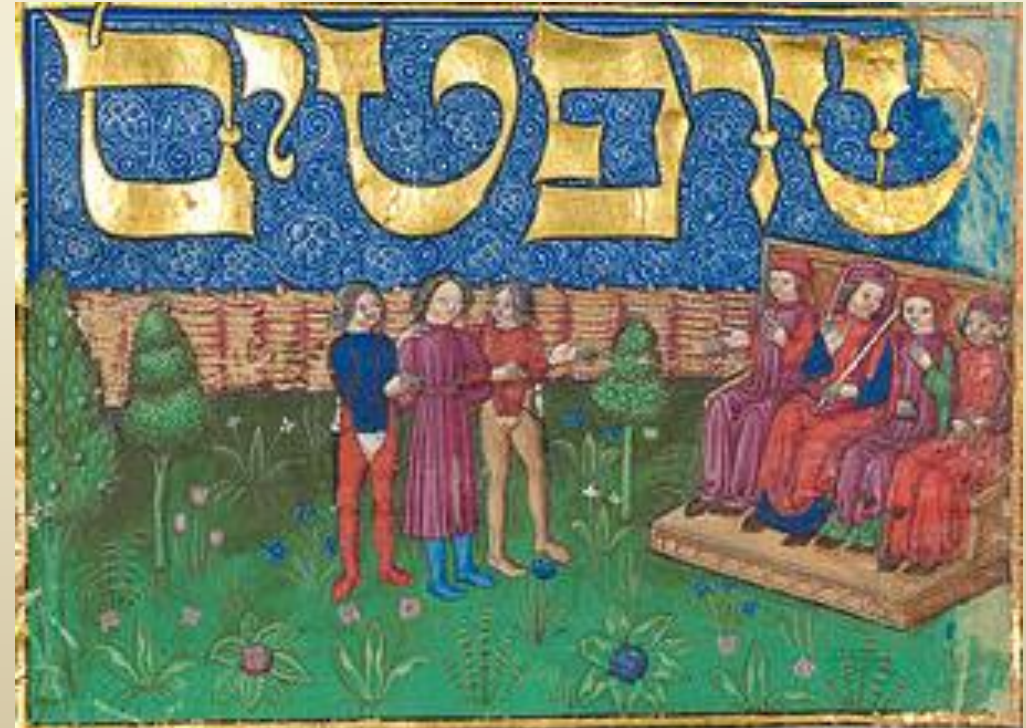 שופטים